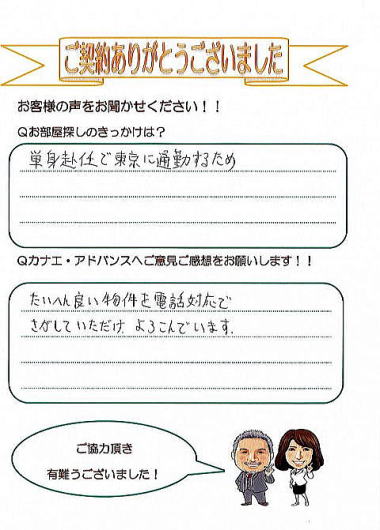 ご契約ありがとうございました
お客様の声をお聞かせください！！
Qお部屋探しのきっかけは？
単身赴任で東京に通勤するため
Qカナエ・アドバンスへご意見ご感想をお願いします！！
たいへん良い物件を電話対応で
さがしていただけ、よろこんでいます。
ご協力頂き
有難うございました！